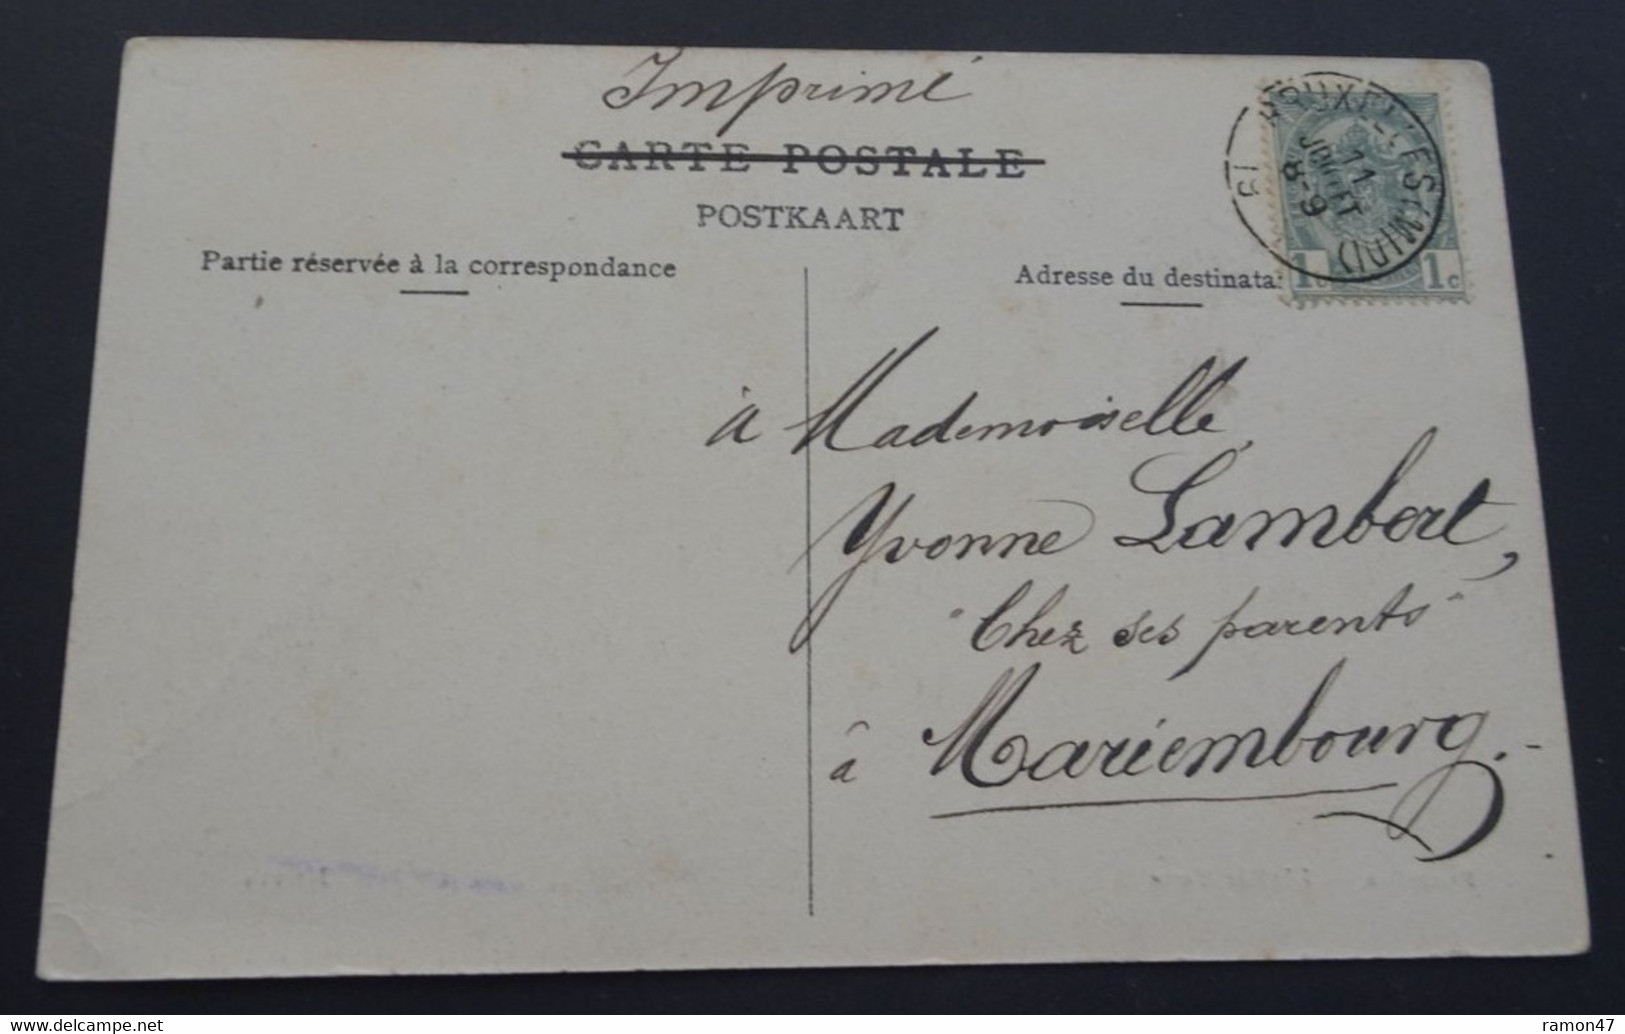 Imprimé
CARTE POSTALE
POSTKAART
Partie réservée à la correspondance
Adresse du destinata
BRUXELLES (MIDI)
11
JUILLET
8-9
1c 1c
à Mademoiselle
Yvonne Lambert,
"Chez ses parents"
à Mariembourg.-
ramon47